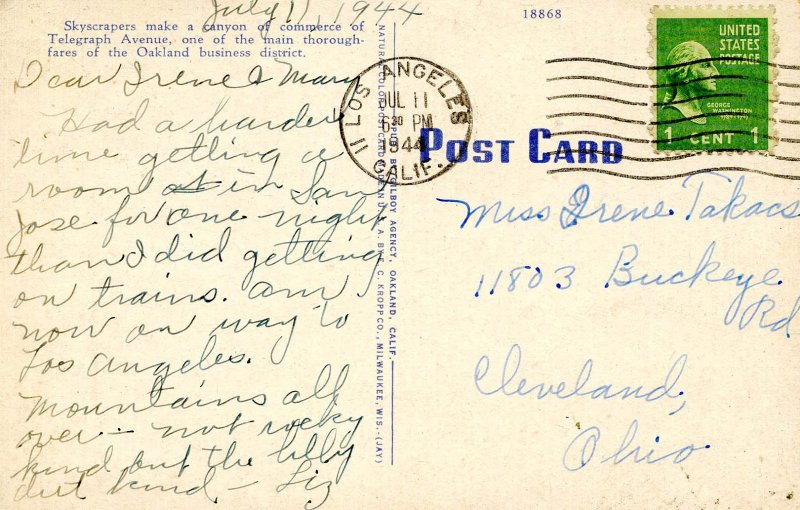 July 11, 1944
Skyscrapers make a canyon of commerce of
Telegraph Avenue, one of the main thorough-
fares of the Oakland business district.
Dear Irene & Mary
Had a harder
time getting a
room at in San
Jose for one night
than I did getting
on trains. Am
now on way to
Los Angeles.
Mountains all
over – not rocky
kind but the hilly
dirt kind – Liz
NATURAL COLOR POST CARD MADE IN U.S.A. BY E. C. KROPP CO., MILWAUKEE, WIS.-(JAY)
PUB. BY GILBOY AGENCY, OAKLAND, CALIF.
18868
LOS ANGELES
JUL 11
6 30 PM
1944
CALIF.
11
UNITED
STATES
POSTAGE
GEORGE
WASHINGTON
1 CENT 1
POST CARD
Miss Irene Takacs
11803 Buckeye
Rd
Cleveland,
Ohio